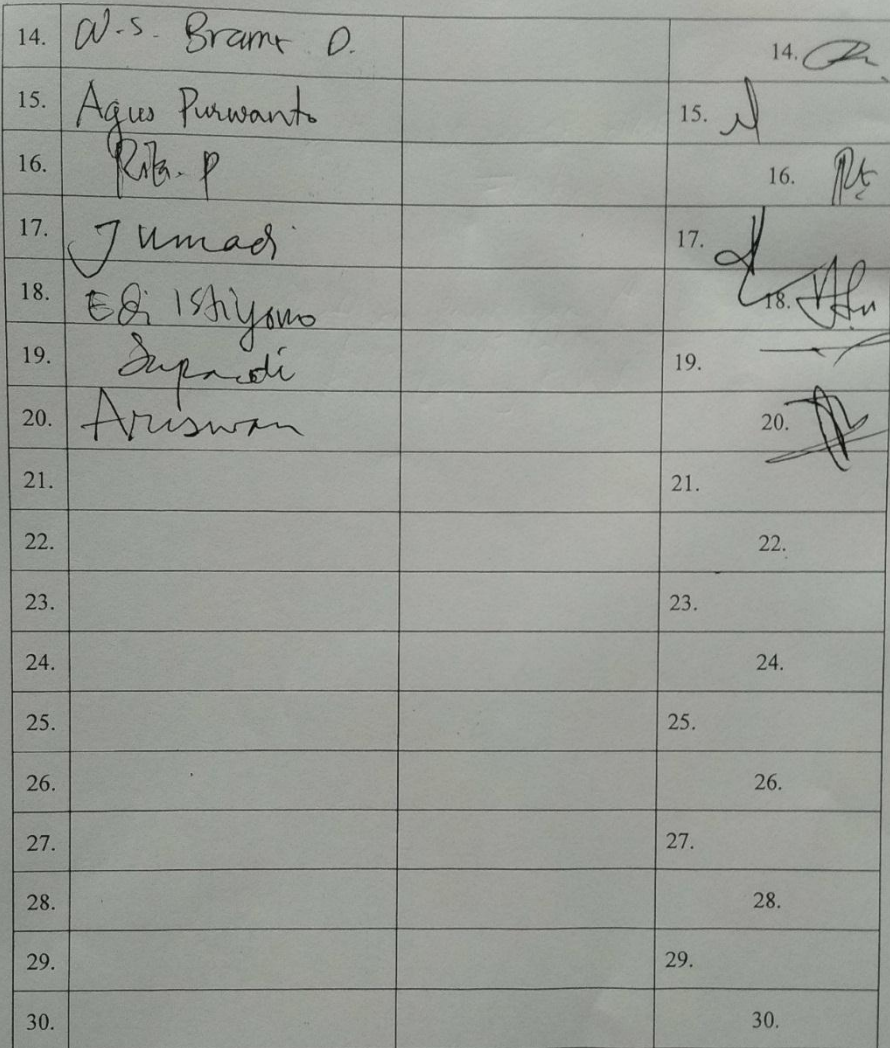 14. W.S. Bramt D. 14.
15. Agus Purwanto 15.
16. Rita. P 16.
17. Jumadi 17.
18. Edi Istiyono 18.
19. Supardi 19.
20. Ariswan 20.
21. 21.
22. 22.
23. 23.
24. 24.
25. 25.
26. 26.
27. 27.
28. 28.
29. 29.
30. 30.